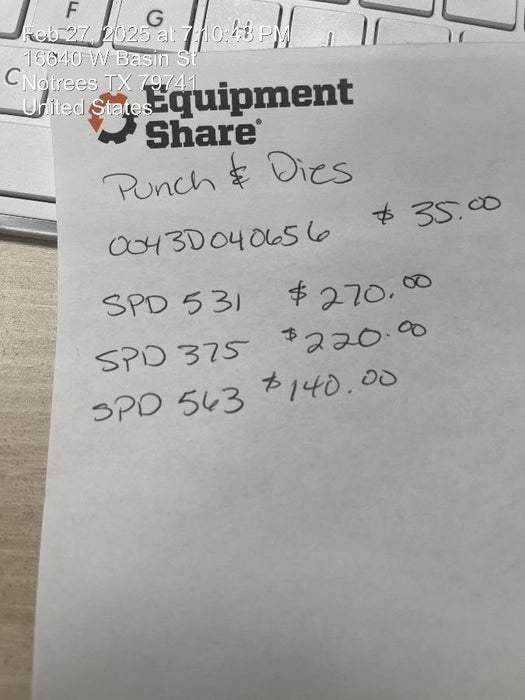 F
G
H
C
Feb 27, 2025 at 7:10:43 PM
16640 W Basin St
Notrees TX 79741
United States
Equipment
Share®
Punch & Dies
0043D040656 $ 35.00
SPD 531 $ 270.00
SPD 375 $ 220.00
SPD 563 $ 140.00